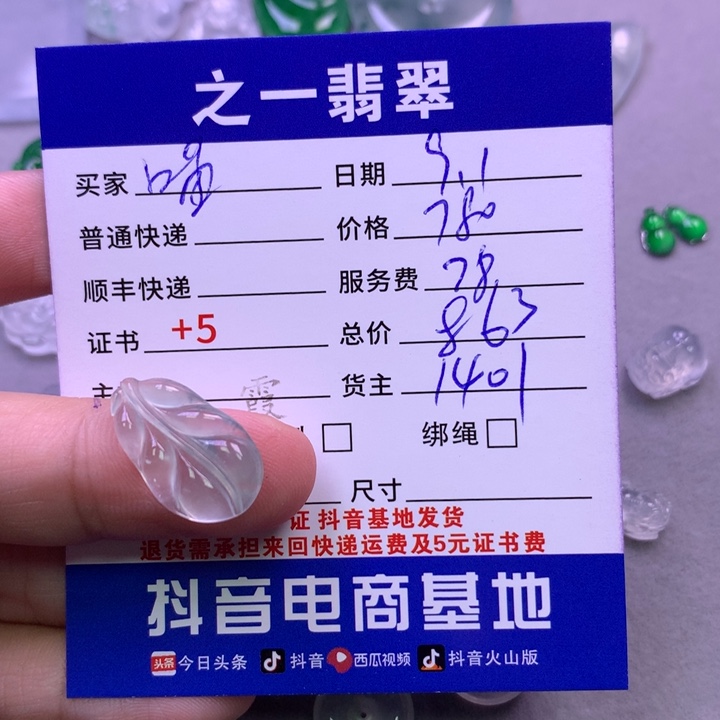 之一翡翠
买家 日期 9.1
普通快递 价格 780
顺丰快递 服务费 78
证书 +5 总价 863
主 霞 货主 1401
绑绳
尺寸
证 抖音基地发货
退货需承担来回快递运费及5元证书费
抖音电商基地
头条 今日头条 抖音 西瓜视频 抖音火山版